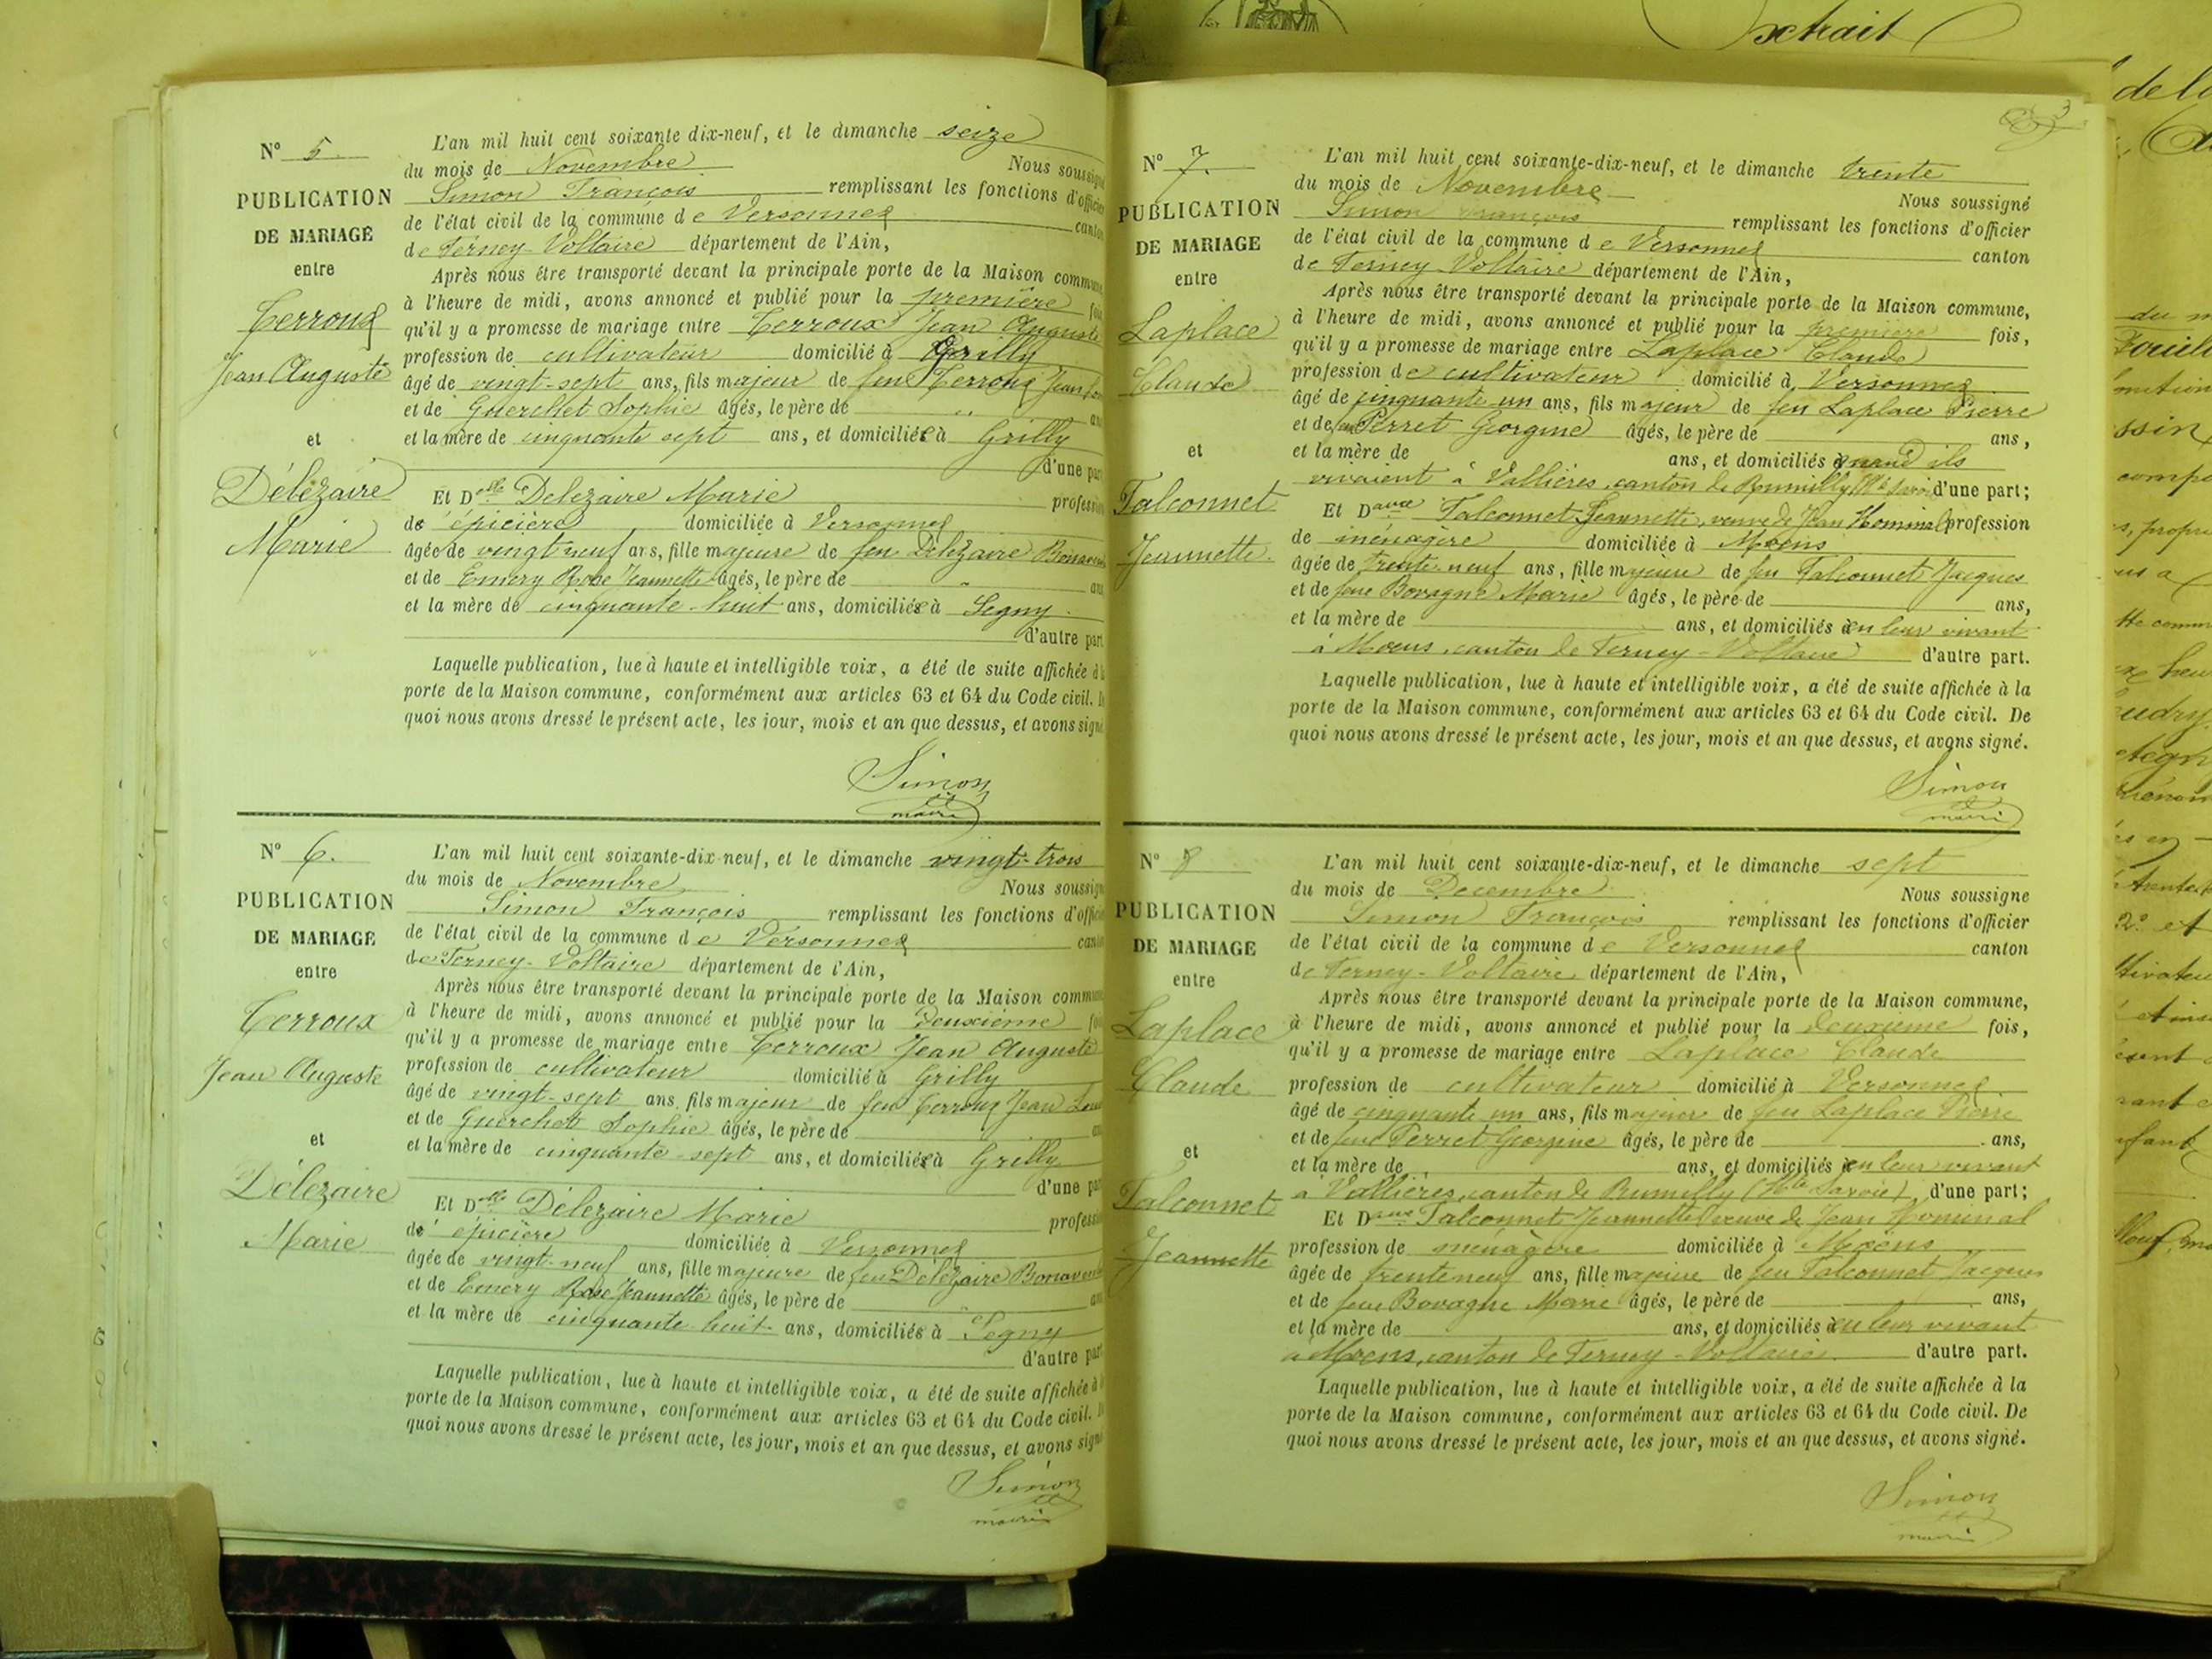 N° 5.
PUBLICATION
DE MARIAGE
entre
Terroux
Jean Auguste
et
Délézaire
Marie
L'an mil huit cent soixante dix-neuf, et le dimanche seize
du mois de Novembre Nous soussigné
Simon François remplissant les fonctions d'officier
de l'état civil de la commune de Versonnex canton
de Ferney-Voltaire département de l'Ain,
Après nous être transporté devant la principale porte de la Maison commune
à l'heure de midi, avons annoncé et publié pour la première fois
qu'il y a promesse de mariage entre Terroux Jean Auguste
profession de cultivateur domicilié à Grilly
âgé de vingt-sept ans, fils majeur de feu Terroux Jean
et de Guerchet Sophie âgés, le père de ans
et la mère de cinquante sept ans, et domiciliée à Grilly
d'une part
Et Delle Delezaire Marie profession
de épicière domiciliée à Versonnex
âgée de vingt neuf ans, fille majeure de feu Délézaire
et de Emery Rose Jeannette âgés, le père de ans
et la mère de cinquante-huit ans, domiciliée à Segny
d'autre part
Laquelle publication, lue à haute et intelligible voix, a été de suite affichée à la
porte de la Maison commune, conformément aux articles 63 et 64 du Code civil. De
quoi nous avons dressé le présent acte, les jour, mois et an que dessus, et avons signé
Simon
maire
N° 6.
PUBLICATION
DE MARIAGE
entre
Terroux
Jean Auguste
et
Délézaire
Marie
L'an mil huit cent soixante-dix-neuf, et le dimanche vingt-trois
du mois de Novembre Nous soussigné
Simon François remplissant les fonctions d'officier
de l'état civil de la commune de Versonnex canton
de Ferney-Voltaire département de l'Ain,
Après nous être transporté devant la principale porte de la Maison commune
à l'heure de midi, avons annoncé et publié pour la deuxième fois
qu'il y a promesse de mariage entre Terroux Jean Auguste
profession de cultivateur domicilié à Grilly
âgé de vingt-sept ans, fils majeur de feu Terroux Jean
et de Guerchet Sophie âgés, le père de ans
et la mère de cinquante-sept ans, et domiciliée à Grilly
d'une part
Et Delle Délézaire Marie profession
de épicière domiciliée à Versonnex
âgée de vingt-neuf ans, fille majeure de feu Délézaire Bonaventure
et de Emery Rose Jeannette âgés, le père de ans
et la mère de cinquante huit ans, domiciliée à Segny
d'autre part
Laquelle publication, lue à haute et intelligible voix, a été de suite affichée à la
porte de la Maison commune, conformément aux articles 63 et 64 du Code civil. De
quoi nous avons dressé le présent acte, les jour, mois et an que dessus, et avons signé
Simon
maire
3
N° 7.
PUBLICATION
DE MARIAGE
entre
Laplace
Claude
et
Falconnet
Jeannette
L'an mil huit cent soixante-dix-neuf, et le dimanche trente
du mois de Novembre Nous soussigné
Simon François remplissant les fonctions d'officier
de l'état civil de la commune de Versonnex canton
de Ferney-Voltaire département de l'Ain,
Après nous être transporté devant la principale porte de la Maison commune,
à l'heure de midi, avons annoncé et publié pour la première fois,
qu'il y a promesse de mariage entre Laplace Claude
profession de cultivateur domicilié à Versonnex
âgé de cinquante un ans, fils majeur de feu Laplace Pierre
et de feu Perret Georgine âgés, le père de ans,
et la mère de ans, et domiciliés quand ils
vivaient à Vallières, canton de Rumilly d'une part;
Et Dame Falconnet Jeannette, veuve de Jean Nominal profession
de ménagère domiciliée à Moens
âgée de trente neuf ans, fille majeure de feu Falconnet Jacques
et de feue Bovagne Marie âgés, le père de ans,
et la mère de ans, et domiciliés en leur vivant
à Moens, canton de Ferney-Voltaire d'autre part.
Laquelle publication, lue à haute et intelligible voix, a été de suite affichée à la
porte de la Maison commune, conformément aux articles 63 et 64 du Code civil. De
quoi nous avons dressé le présent acte, les jour, mois et an que dessus, et avons signé.
Simon
maire
N° 8
PUBLICATION
DE MARIAGE
entre
Laplace
Claude
et
Falconnet
Jeannette
L'an mil huit cent soixante-dix-neuf, et le dimanche sept
du mois de Decembre Nous soussigné
Simon François remplissant les fonctions d'officier
de l'état civil de la commune de Versonnex canton
de Ferney-Voltaire département de l'Ain,
Après nous être transporté devant la principale porte de la Maison commune,
à l'heure de midi, avons annoncé et publié pour la deuxième fois,
qu'il y a promesse de mariage entre Laplace Claude
profession de cultivateur domicilié à Versonnex
âgé de cinquante un ans, fils majeur de feu Laplace Pierre
et de feue Perret Georgine âgés, le père de ans,
et la mère de ans, et domiciliés en leur vivant
à Vallières, canton de Rumilly (Hte Savoie), d'une part;
Et Dame Falconnet Jeannette veuve de Jean Nominal
profession de ménagère domiciliée à Moëns
âgée de trente neuf ans, fille majeure de feu Falconnet Jacques
et de feue Bovagne Marie âgés, le père de ans,
et la mère de ans, et domiciliés en leur vivant
à Moens, canton de Ferney-Voltaire d'autre part.
Laquelle publication, lue à haute et intelligible voix, a été de suite affichée à la
porte de la Maison commune, conformément aux articles 63 et 64 du Code civil. De
quoi nous avons dressé le présent acte, les jour, mois et an que dessus, et avons signé.
Simon
maire
Extrait